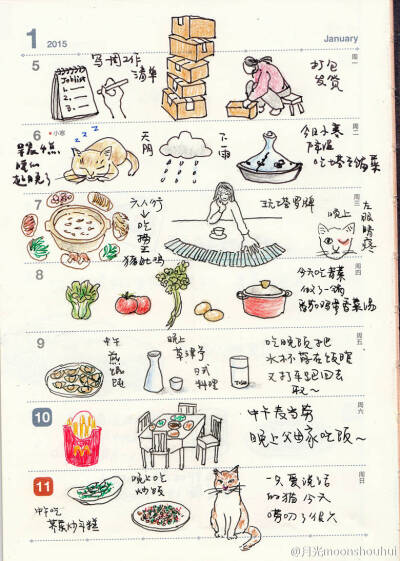 1 2015
January
5
周一
写周工作
清单
Joblist
1.
2.
3.
打包
发货
6
小寒
周二
天
阴
下
雨
今日小寒
降温
吃塔吉锅菜
7
周三
六人行
吃
捞
王
猪肚鸡
玩塔罗牌
晚上
左眼睛疼
8
周四
今天吃素菜
做了一锅
9
周五
中午
煎
馄
饨
晚上
草津亭
日式
料理
吃晚饭把
水杯落在饭馆
又打车跑回去
取~
10
周六
中午麦当劳
晚上父母家吃饭~
11
周日
中午吃
荠菜炒年糕
晚上吃
炒饭
一只爱说话
的猫今天
唠叨了很久
@月光moonshouhui